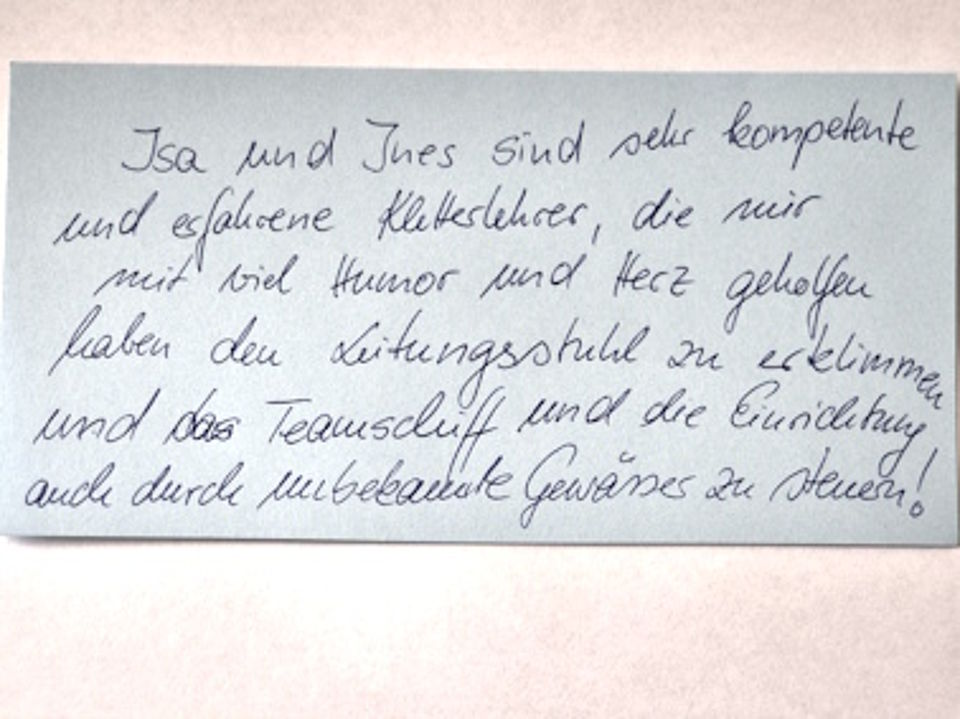 Isa und Ines sind sehr kompetente
und erfahrene Kletterlehrer, die mir
mit viel Humor und Herz geholfen
haben den Leitungsstuhl zu erklimmen
und das Teamschiff und die Einrichtung
auch durch unbekannte Gewässer zu steuern!